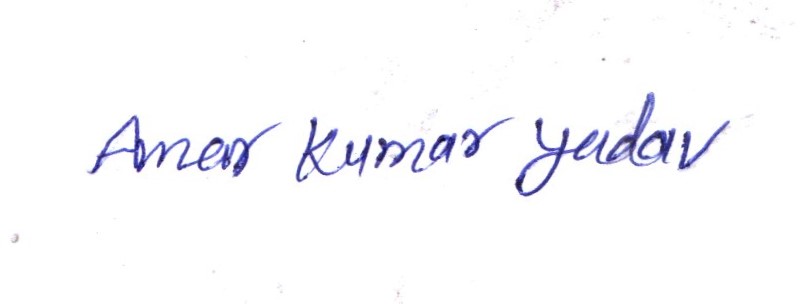 Amar Kumar Yadav